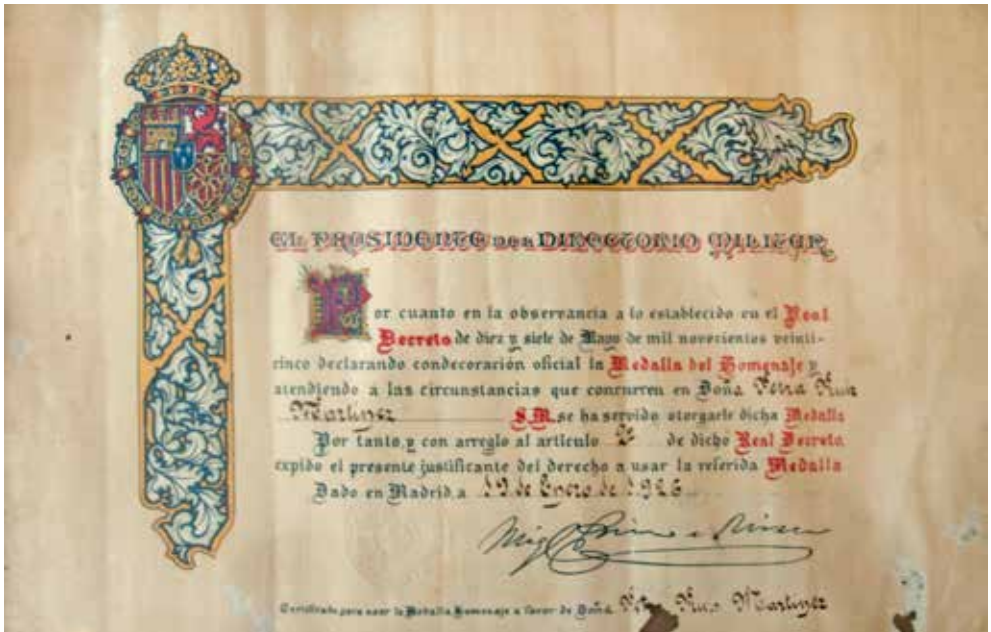 EL PRESIDENTE DEL DIRECTORIO MILITAR
Por cuanto en la observancia a lo establecido en el Real
Decreto de diez y siete de Mayo de mil novecientos veinti-
cinco declarando condecoración oficial la Medalla del Homenaje y
atendiendo a las circunstancias que concurren en Doña Petra Ruiz
Martinez S.M. se ha servido otorgarle dicha Medalla
Por tanto, y con arreglo al artículo 2º de dicho Real Decreto,
expido el presente justificante del derecho a usar la referida Medalla
Dado en Madrid, a 19 de Enero de 1926
Mig Primo de Rivera
Certificado para usar la Medalla Homenaje a favor de Doña Martinez